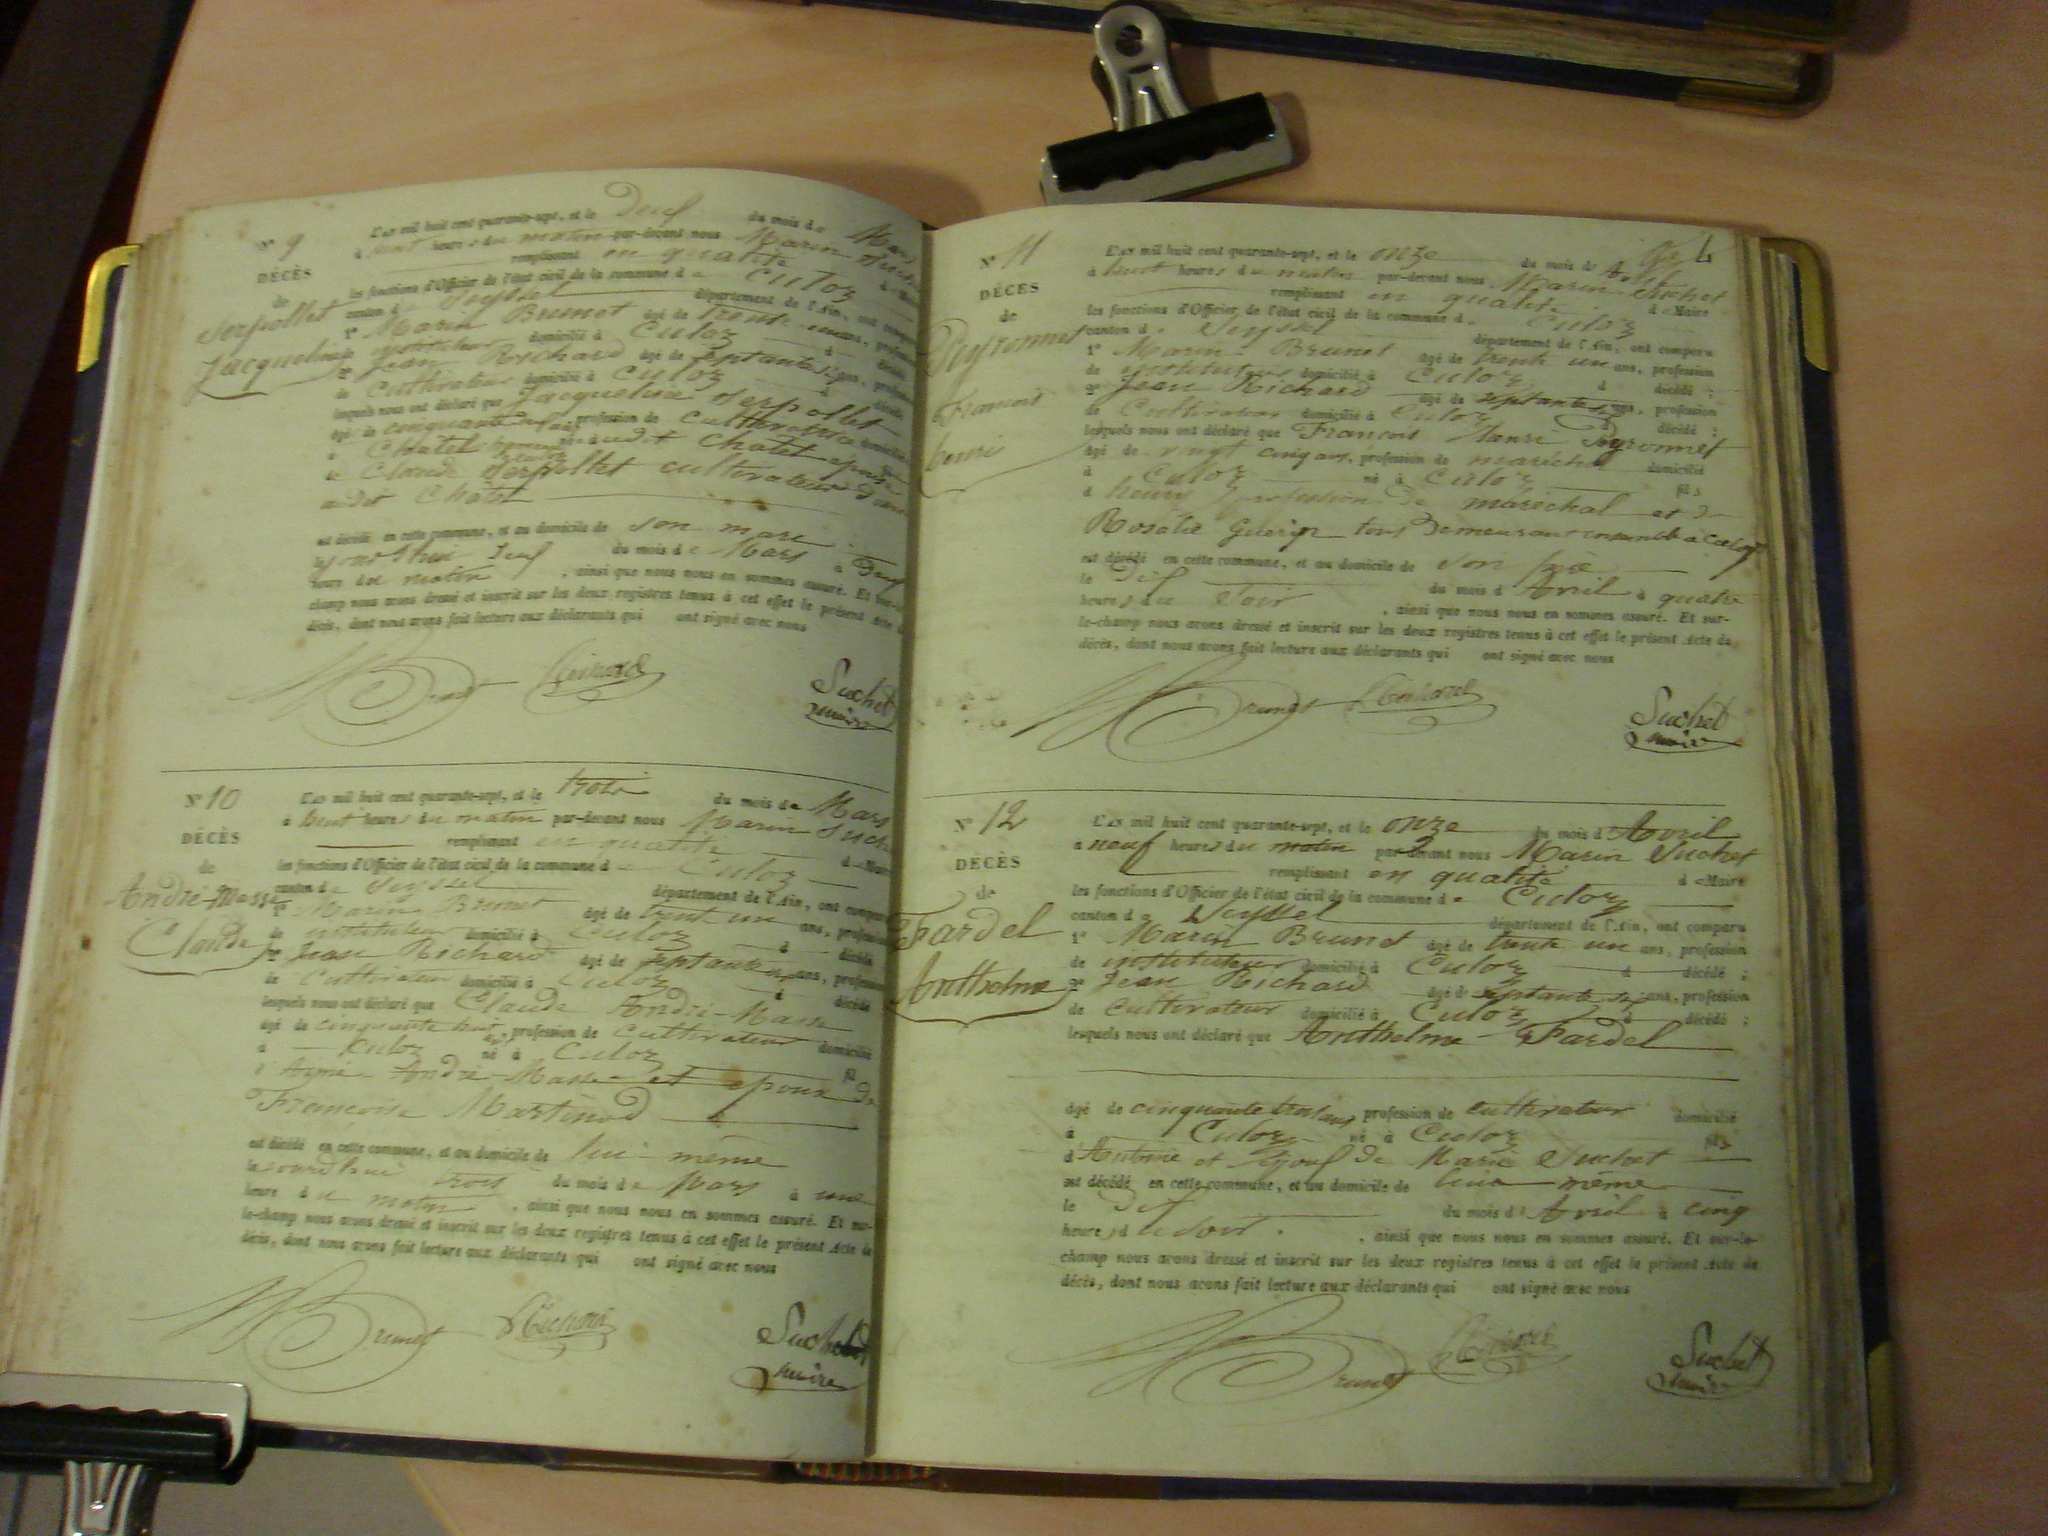 N° 9
DÉCÈS
de
Serpollet
Jacqueline
L'AN mil huit cent quarante-sept, et le Deuf du mois de Mars
à huit heures du matin par-devant nous Marin Suchet
remplissant en qualité d Maire
les fonctions d'Officier de l'état civil de la commune de Culoz
canton de Seyssel département de l'Ain, ont comparu
1° Marin Brunet âgé de trente un ans, profession
de instituteur domicilié à Culoz d décédé
2° Jean Richard âgé de septante six ans, profession
de Cultivateur domicilié à Culoz d décédé
lesquels nous ont déclaré que Jacqueline Serpollet
âgé de cinquante profession de cultivatrice domicilié
à Chatel audit Chatel épouse
de Claude Serpollet cultivateur
audit Chatel
est décédé en cette commune, et au domicile de son mari
le du mois de Mars à Deuf
heure du matin, ainsi que nous nous en sommes assuré. Et sur-le-
champ nous avons dressé et inscrit sur les deux registres tenus à cet effet le présent Acte de
décès, dont nous avons fait lecture aux déclarants qui ont signé avec nous
Brunet Richard Suchet
maire
N° 10
DÉCÈS
de
André-Masse
Claude
L'AN mil huit cent quarante-sept, et le trois du mois de Mars
à huit heures du matin par-devant nous Marin Suchet
remplissant en qualité d Maire
les fonctions d'Officier de l'état civil de la commune de Culoz
canton de Seyssel département de l'Ain, ont comparu
1° Marin Brunet âgé de trente un ans, profession
de instituteur domicilié à Culoz d décédé
2° Jean Richard âgé de septante six ans, profession
de Cultivateur domicilié à Culoz d décédé
lesquels nous ont déclaré que Claude André-Masse
âgé de cinquante huit ans, profession de Cultivateur domicilié
à Culoz né à Culoz fil
d'Aimé André-Masse et epoux de
Francoise Martinod
est décédé en cette commune, et au domicile de lui-même
le jourd'hui trois du mois de Mars à une
heure du matin, ainsi que nous nous en sommes assuré. Et sur-
le-champ nous avons dressé et inscrit sur les deux registres tenus à cet effet le présent Acte de
décès, dont nous avons fait lecture aux déclarants qui ont signé avec nous
Brunet Richard Suchet
maire
N° 11
DÉCÈS
de
Peyronnet
Francois
henri
L'AN mil huit cent quarante-sept, et le onze du mois de Avril
à huit heures du matin par-devant nous Marin Suchet
remplissant en qualité d Maire
les fonctions d'Officier de l'état civil de la commune d. Culoz
canton d. Seyssel département de l'Ain, ont comparu
1° Marin Brunet âgé de trente un ans, profession
de instituteur domicilié à Culoz d décédé ;
2° Jean Richard âgé de septante six ans, profession
de Cultivateur domicilié à Culoz d décédé ;
lesquels nous ont déclaré que Francois Peyronnet
âgé de vingt cinq ans, profession de maréchal domicilié
à Culoz né à Culoz fils
d henri profession de maréchal et de
Rosalie Guerin tous demeurant ensemble à Culoz
est décédé en cette commune, et au domicile de son père
le Dif du mois d Avril à quatre
heures du Soir, ainsi que nous nous en sommes assuré. Et sur-
le-champ nous avons dressé et inscrit sur les deux registres tenus à cet effet le présent Acte de
décès, dont nous avons fait lecture aux déclarants qui ont signé avec nous
Brunet Richard Suchet
maire
N° 12
DÉCÈS
de
Fardel
Anthelme
L'AN mil huit cent quarante-sept, et le onze du mois d Avril
à neuf heures du matin par-devant nous Marin Suchet
remplissant en qualité d Maire
les fonctions d'Officier de l'état civil de la commune de Culoz
canton de Seyssel département de l'Ain, ont comparu
1° Marin Brunet âgé de trente un ans, profession
de instituteur domicilié à Culoz d décédé ;
2° Jean Richard âgé de septante six ans, profession
de cultivateur domicilié à Culoz d décédé ;
lesquels nous ont déclaré que Anthelme Fardel
âgé de cinquante trois ans profession de cultivateur domicilié
à Culoz né à Culoz fils
d'Antoine et Epouf de Marie Suchet
est décédé en cette commune, et au domicile de lui même
le Dif du mois d'Avril à cinq
heures du soir, ainsi que nous nous en sommes assuré. Et sur-le-
champ nous avons dressé et inscrit sur les deux registres tenus à cet effet le présent Acte de
décès, dont nous avons fait lecture aux déclarants qui ont signé avec nous
Brunet Richard Suchet
maire